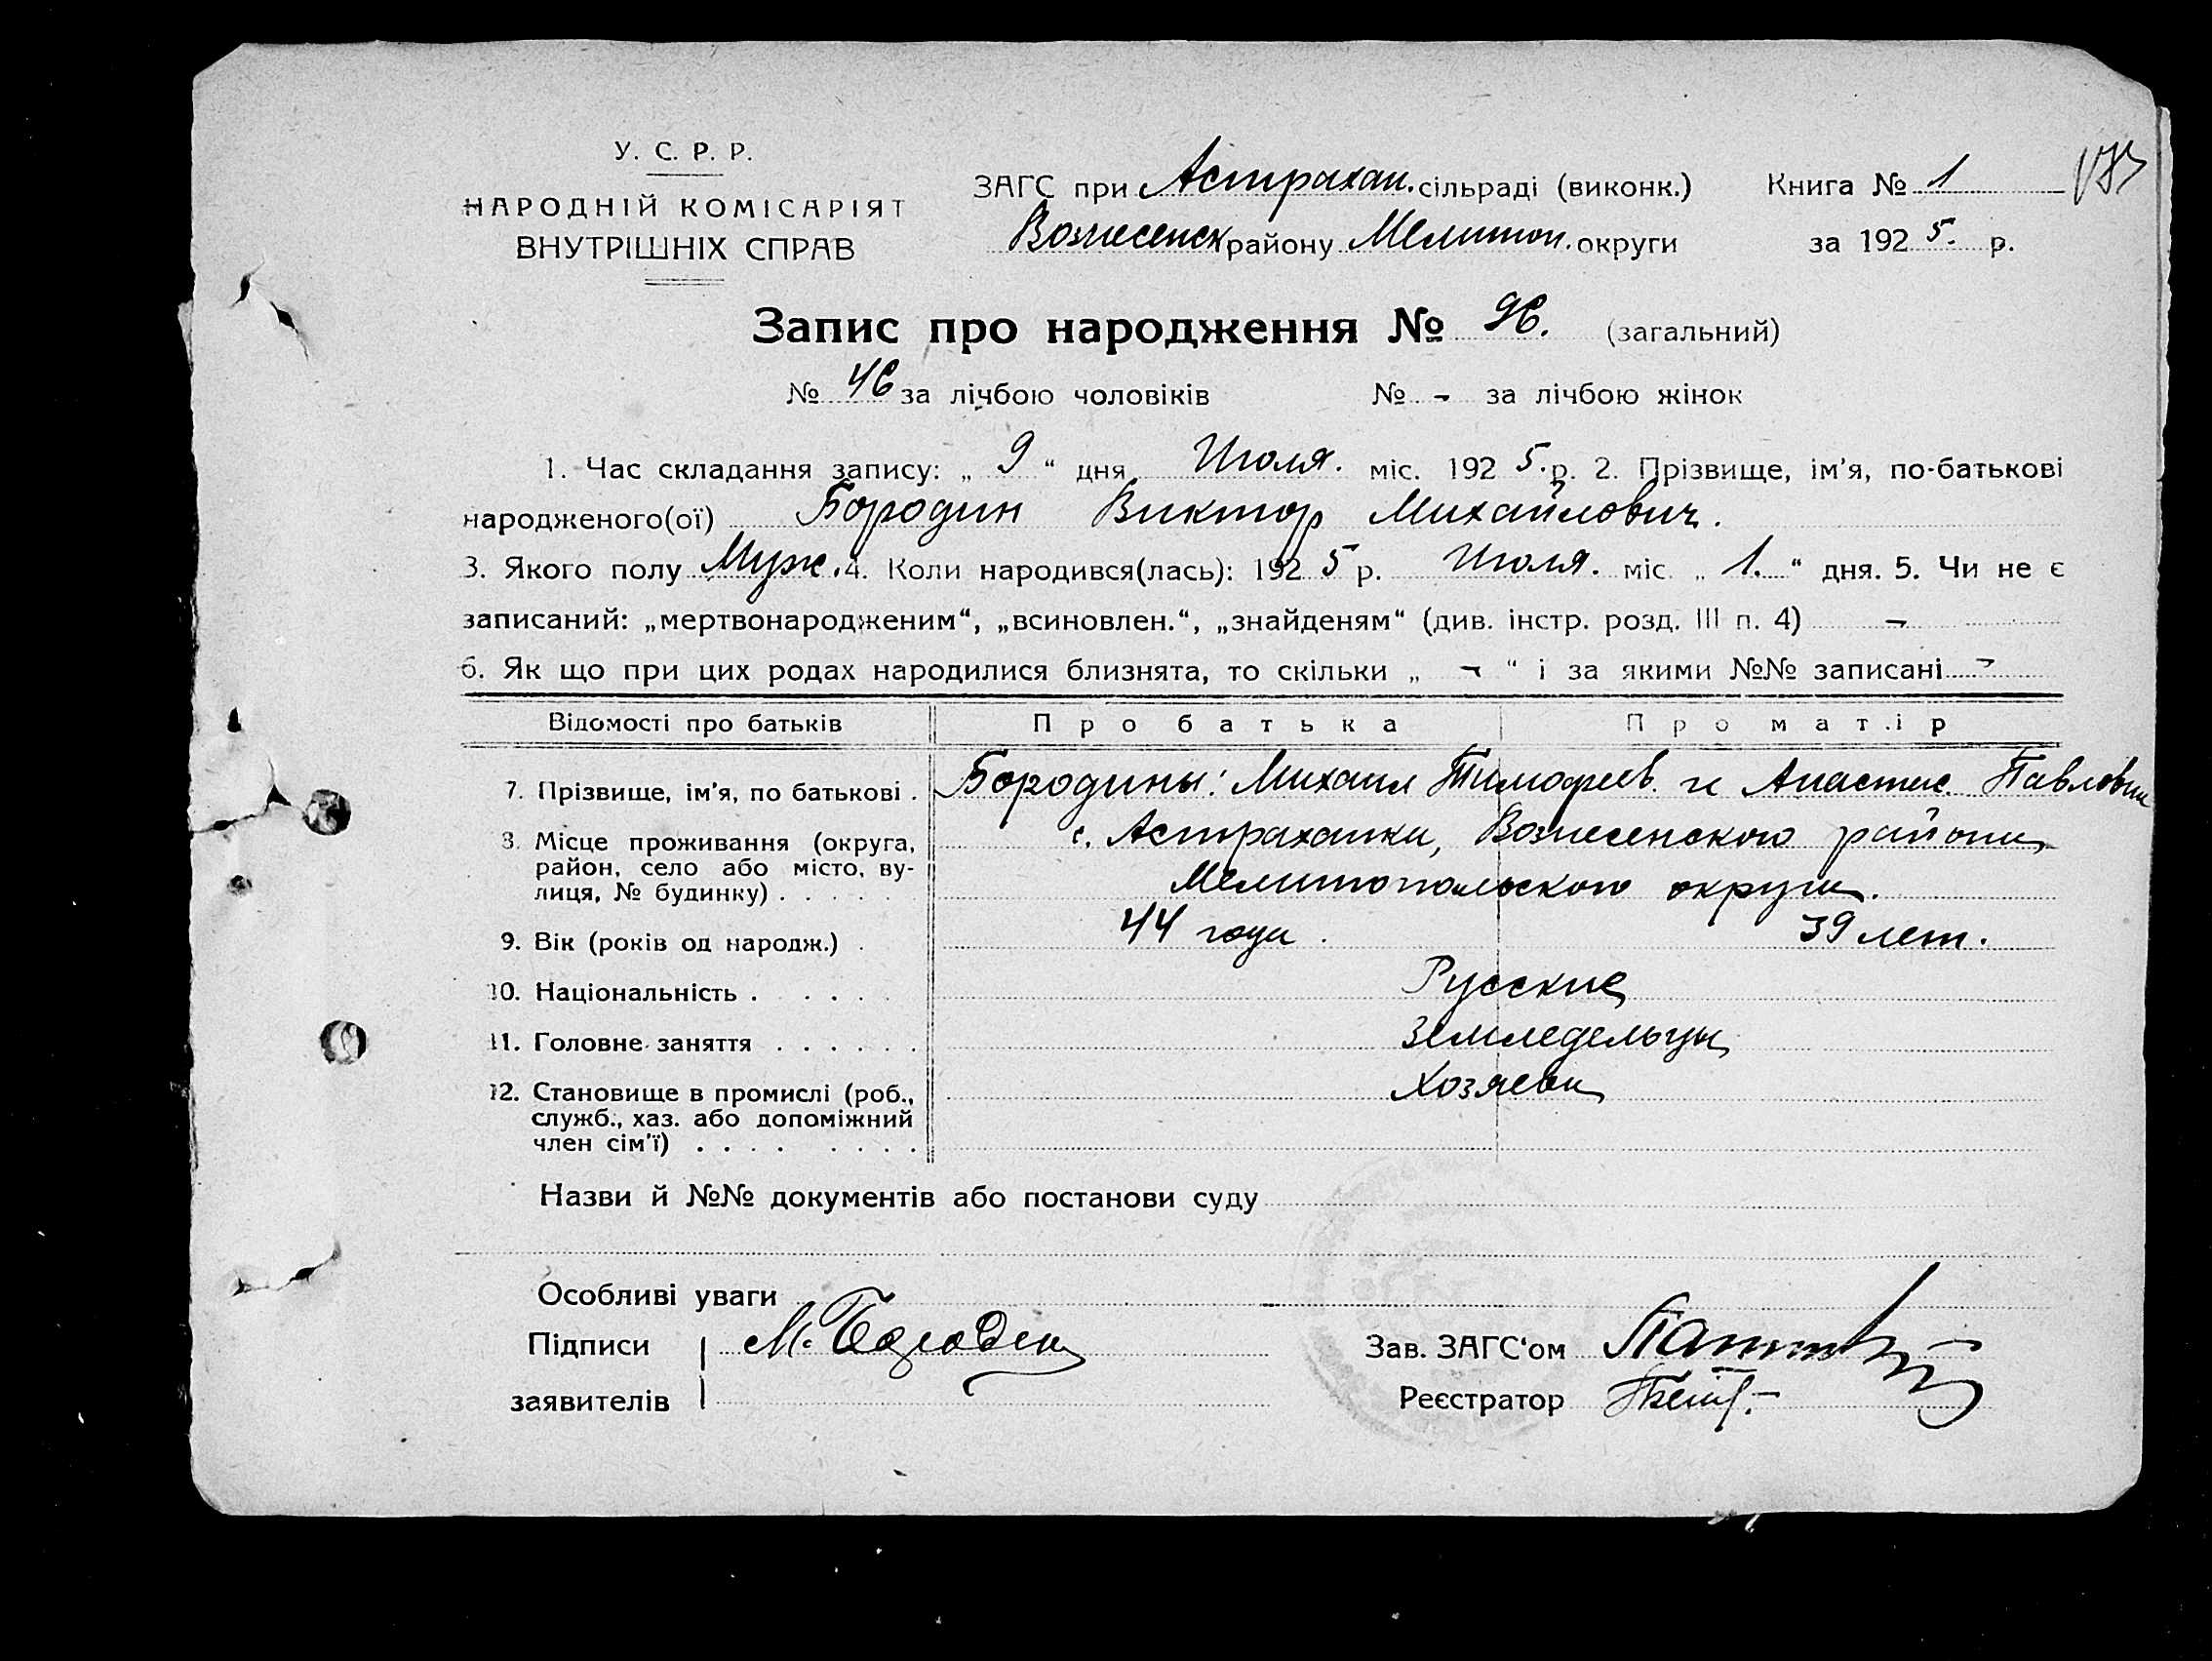 У. С. Р. Р.
НАРОДНІЙ КОМІСАРІЯТ
ВНУТРІШНІХ СПРАВ
ЗАГС при Астрахан. сільраді (виконк.) Книга № 1
Вознесенск району Мелитоп. округи за 1925. р.
Запис про народження № 96. (загальний)
№ 46 за лічбою чоловіків № - за лічбою жінок
1. Час складання запису: „ 9 “ дня Июля. міс. 1925. р. 2. Прізвище, ім'я, по-батькові
народженого(ої) Бородин Виктор Михайлович.
3. Якого полу Муж. 4. Коли народився(лась): 1925 р. Июля. міс. „ 1. “ дня. 5. Чи не є
записаний: „мертвонародженим“, „всиновлен.“, „знайденям“ (див. інстр. розд. III п. 4) -
6. Як що при цих родах народилися близнята, то скільки „ - “ і за якими №№ записані -
Відомості про батьків Про батька Про матір
7. Прізвище, ім'я, по батькові . Бородины: Михаил Тимофеев. и Анастас. Павловна
8. Місце проживання (округа, с. Астраханки, Вознесенского района
район, село або місто, ву-
лиця, № будинку) . . . . . . Мелитопольского округа.
9. Вік (років од народж.) . 44 года . 39 лет.
10. Національність . . . . . Русские
11. Головне заняття . . . . . . Земледельцы
12. Становище в промислі (роб., Хозяева
служб., хаз. або допоміжний
член сім'ї) . . . . . . . .
Назви й №№ документів або постанови суду
Особливі уваги
Підписи М. Бородин Зав. ЗАГС'ом
заявителів Реєстратор